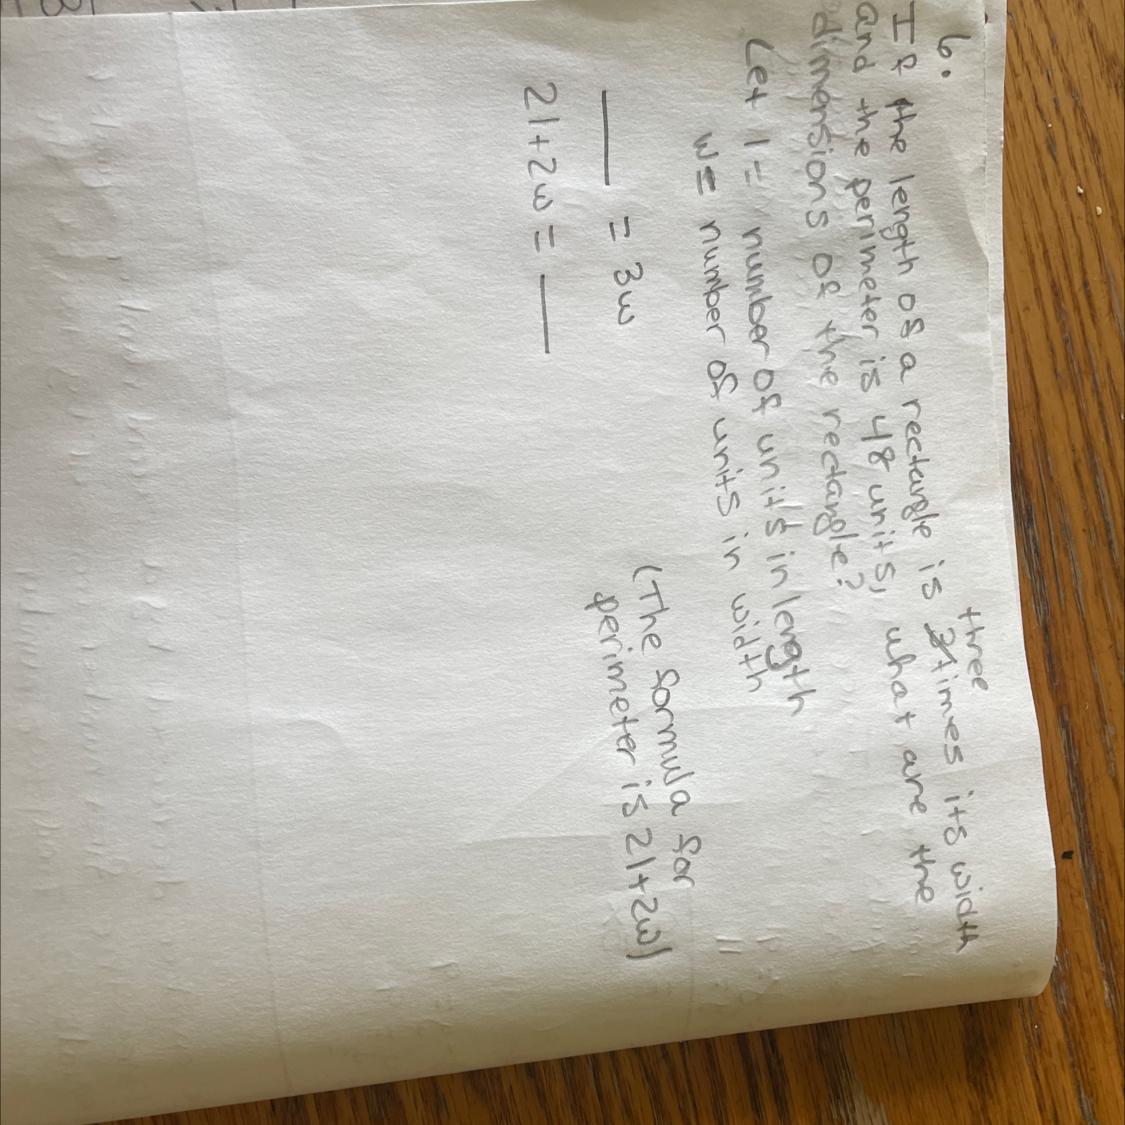 6.
If the length of a rectangle is three times its width
and the perimeter is 48 units, what are the
dimensions of the rectangle?
Let l = number of units in length
w = number of units in width
(The formula for
perimeter is 2l+2w)
___ = 3w
2l+2w = ___